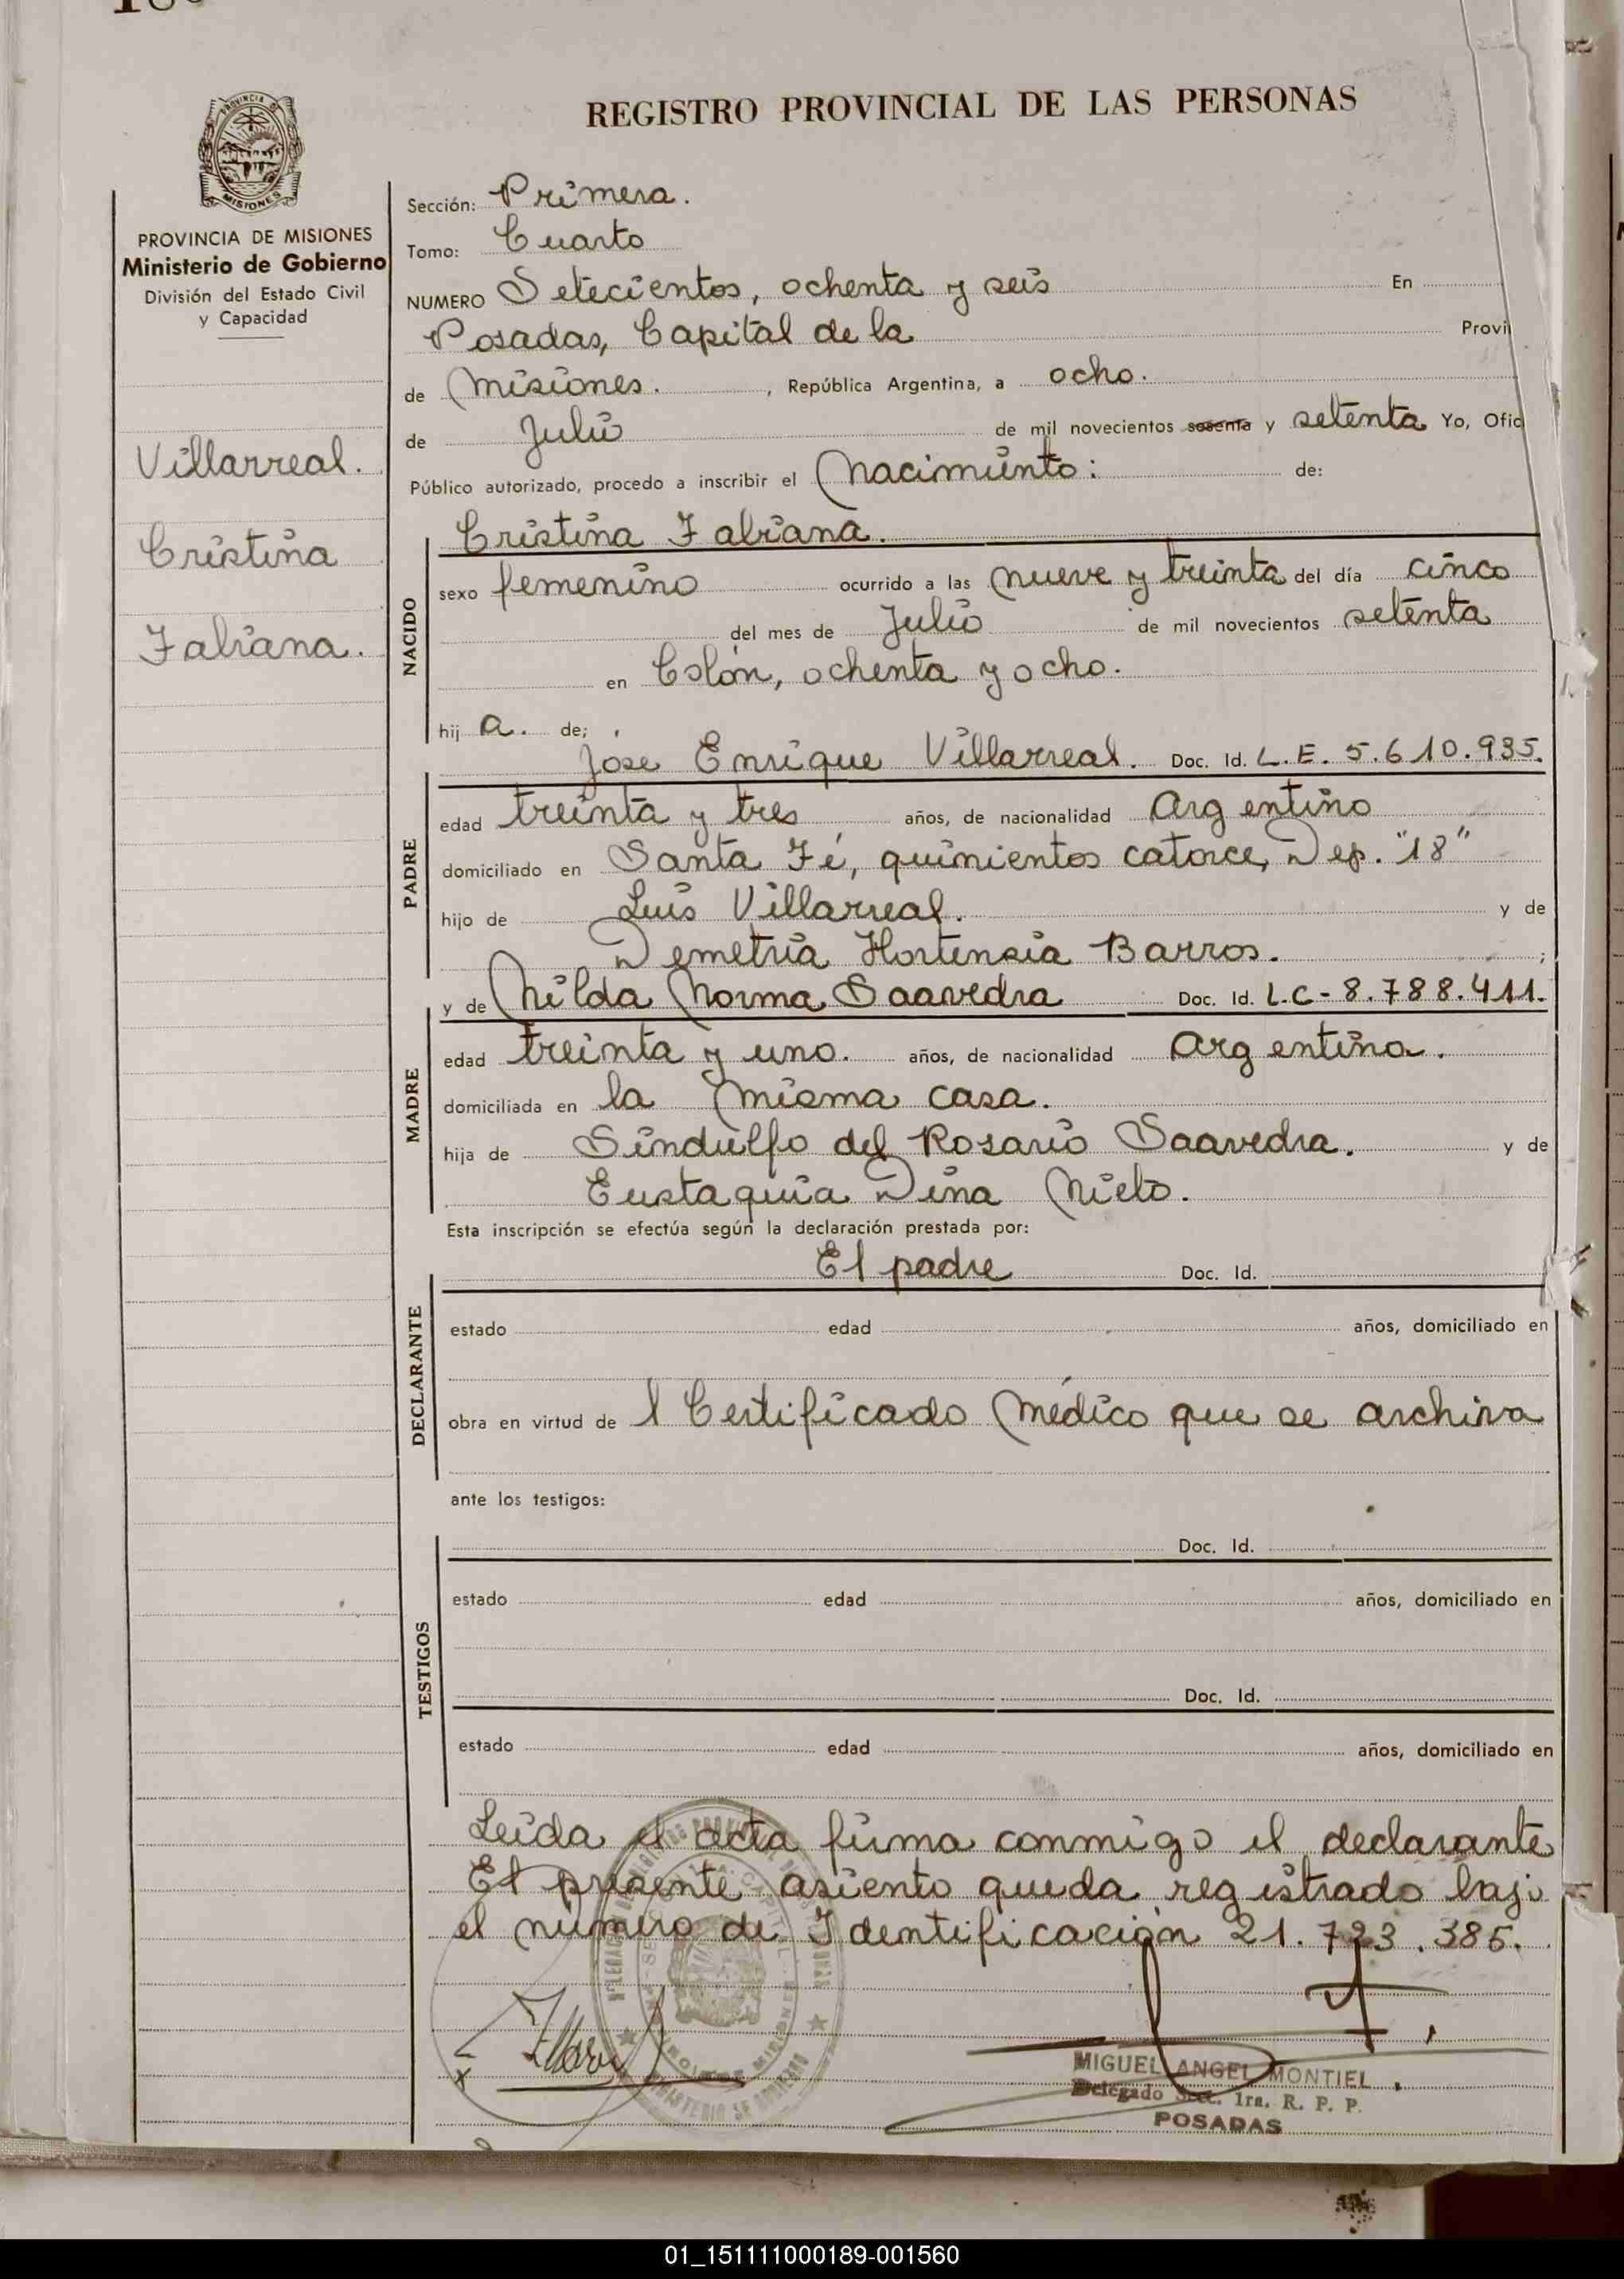 REGISTRO PROVINCIAL DE LAS PERSONAS
PROVINCIA
MISIONES
PROVINCIA DE MISIONES
Ministerio de Gobierno
División del Estado Civil
y Capacidad
Villarreal.
Cristina
Fabiana.
Sección: Primera.
Tomo: Cuarto
NUMERO Setecientos, ochenta y seis En
Posadas, Capital de la Provi
de Misiones. , República Argentina, a ocho.
de Julio de mil novecientos sesenta y setenta Yo, Ofic
Público autorizado, procedo a inscribir el Nacimiento: de:
Cristina Fabiana.
NACIDO
sexo femenino ocurrido a las nueve y treinta del día cinco
del mes de Julio de mil novecientos setenta
en Colón, ochenta y ocho.
hij a. de;
José Enrique Villarreal. Doc. Id. L.E. 5.610.935.
PADRE
edad treinta y tres años, de nacionalidad Argentino
domiciliado en Santa Fé, quinientos catorce, Dep. "18"
hijo de Luis Villarreal. y de
Demetria Hortensia Barros. ;
y de Nilda Norma Saavedra Doc. Id. L.C-8.788.411.
MADRE
edad treinta y uno. años, de nacionalidad Argentina.
domiciliada en la misma casa.
hija de Sindulfo del Rosario Saavedra. y de
Eustaquia Dina Nieto.
Esta inscripción se efectúa según la declaración prestada por:
El padre Doc. Id.
DECLARANTE
estado edad años, domiciliado en
obra en virtud de l Certificado Médico que se archiva
ante los testigos:
Doc. Id.
TESTIGOS
estado edad años, domiciliado en
Doc. Id.
estado edad años, domiciliado en
Leída el acta firma conmigo el declarante
El presente asiento queda registrado bajo
el número de Identificación 21.723.385.
MIGUEL ANGEL MONTIEL
Delegado Secc. 1ra. R. P. P.
POSADAS
01_151111000189-001560